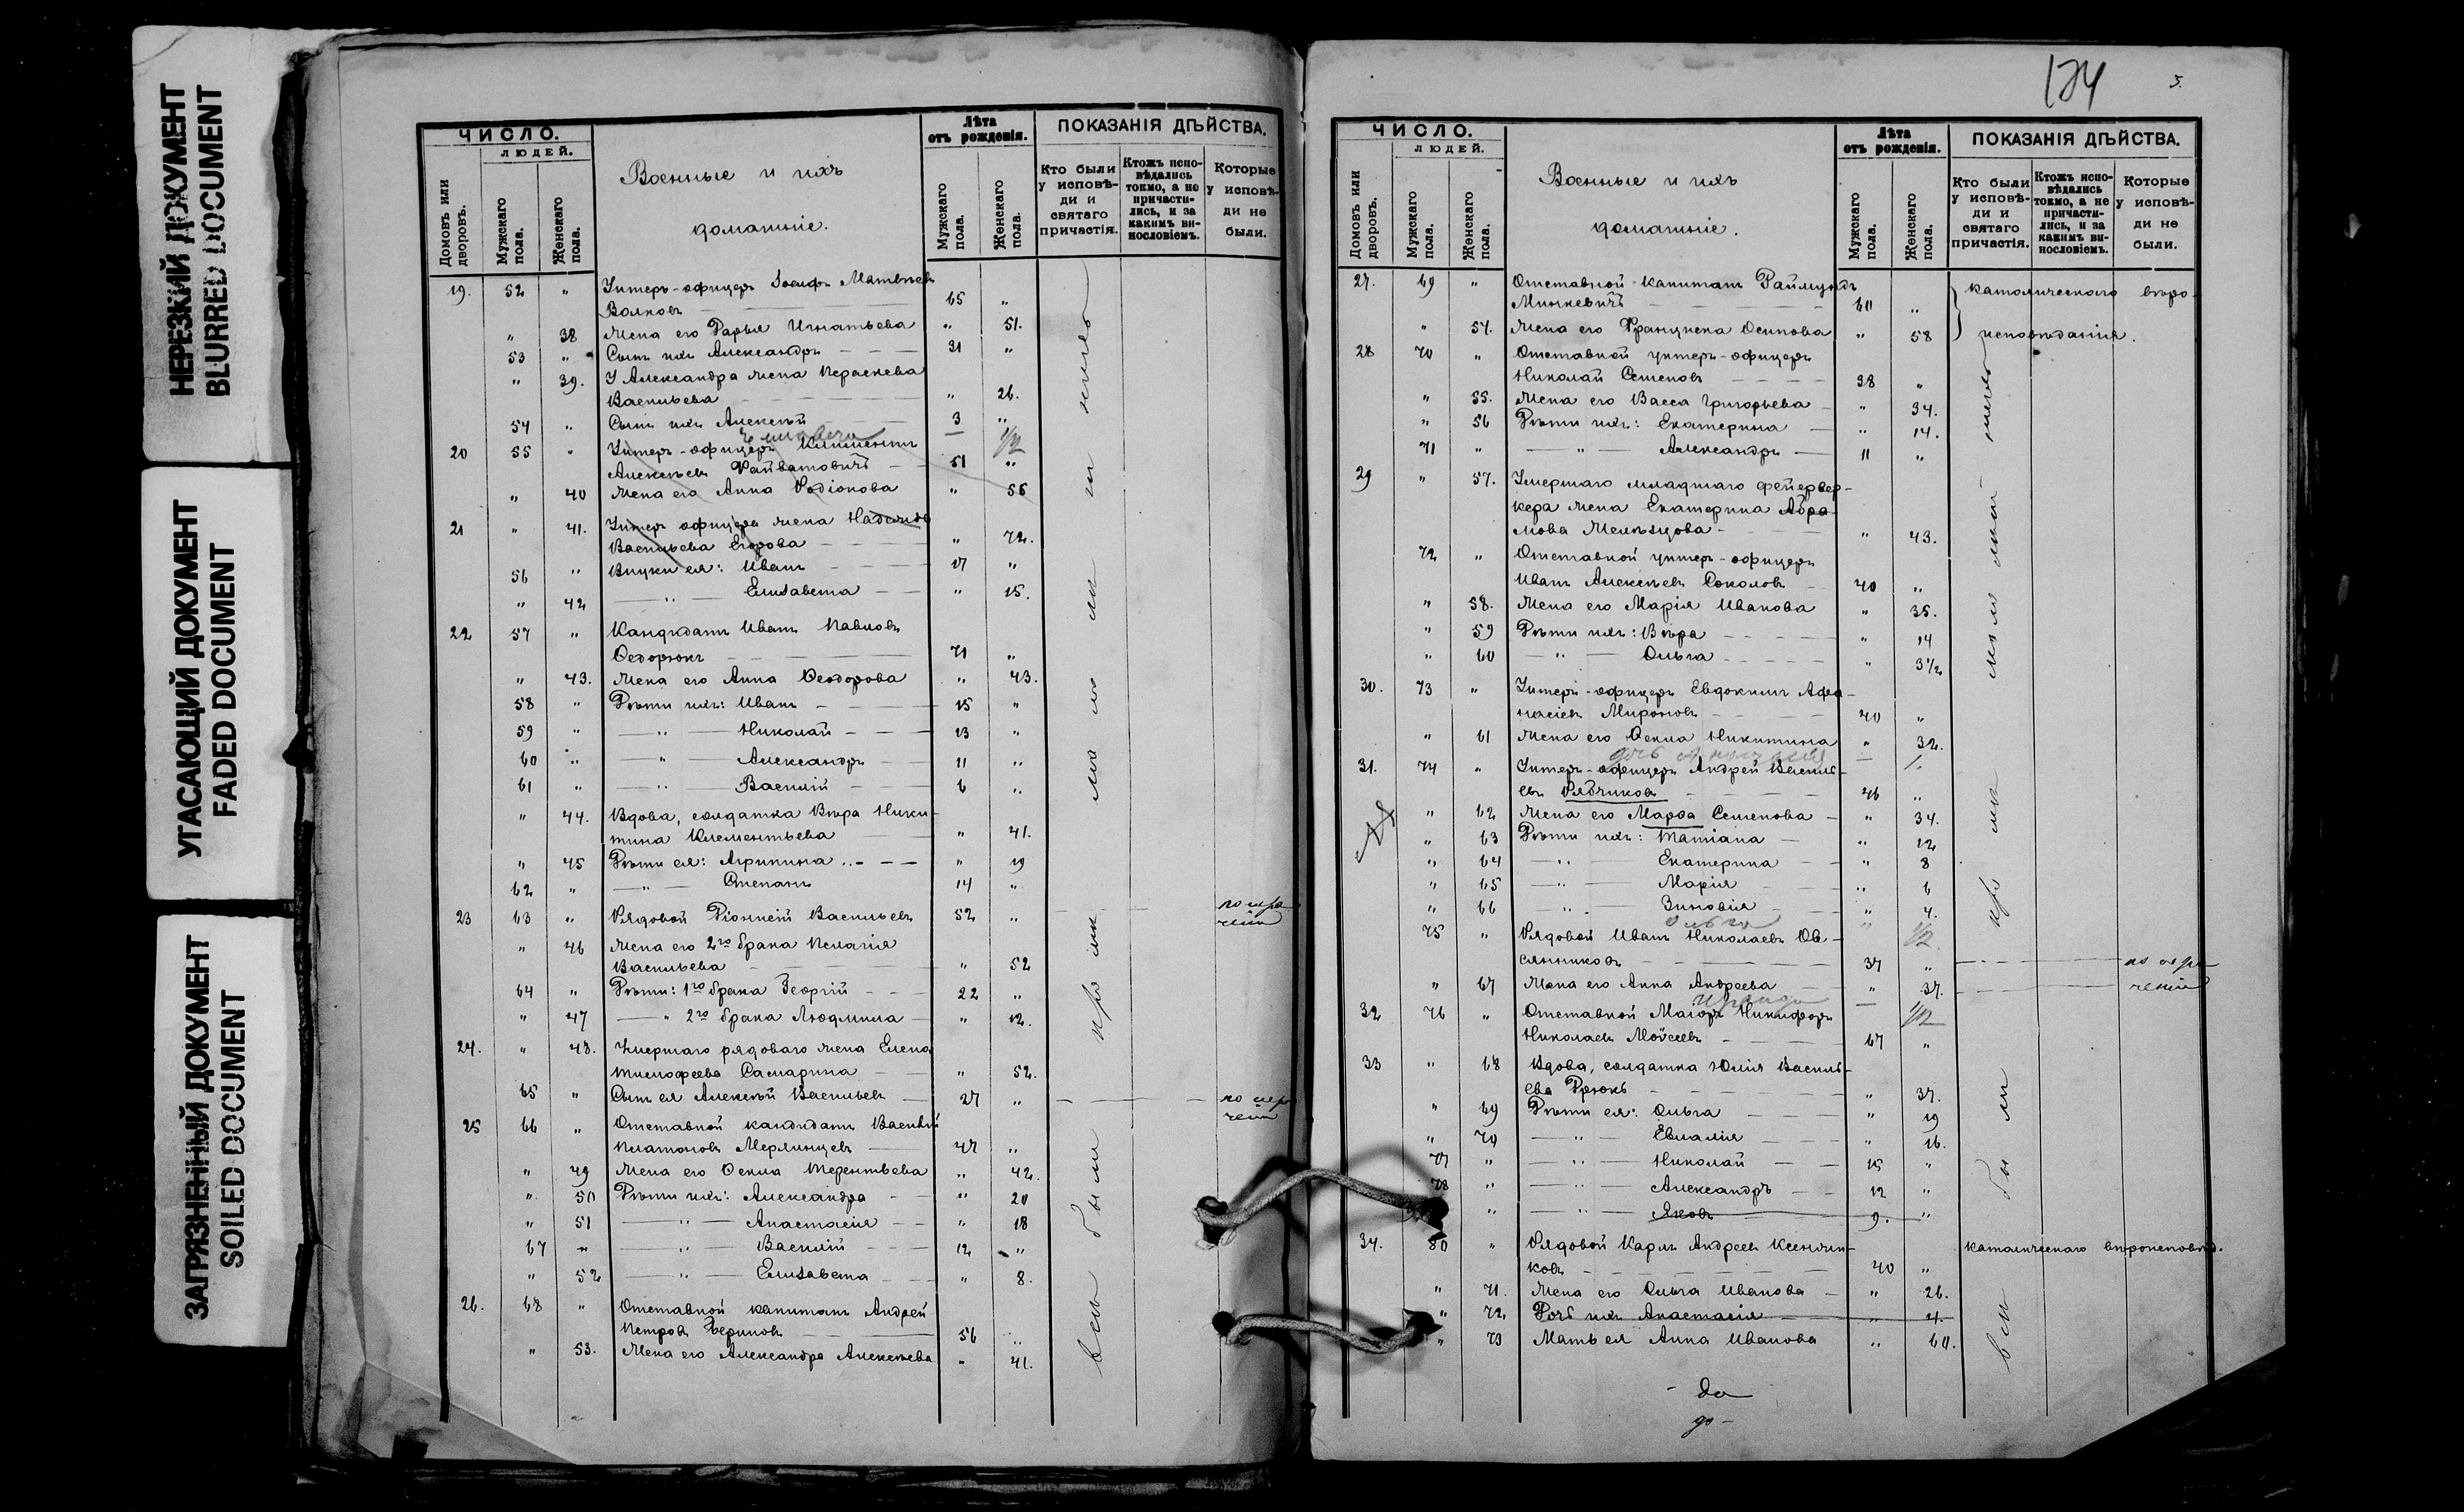 НЕРЕЗКИЙ ДОКУМЕНТ
BLURRED DOCUMENT
УГАСАЮЩИЙ ДОКУМЕНТ
FADED DOCUMENT
ЗАГРЯЗНЕННЫЙ ДОКУМЕНТ
SOILED DOCUMENT
ЧИСЛО.
ЛЮДЕЙ.
Домовъ или дворовъ.
Мужскаго пола.
Женскаго пола.
Военные и ихъ
домашніе.
Лѣта
отъ рожденія.
Мужскаго пола.
Женскаго пола.
ПОКАЗАНІЯ ДѢЙСТВА.
Кто были у исповѣди и святаго причастія.
Ктожъ исповѣдались токмо, а не причастились, и за какимъ винословіемъ.
Которые у исповѣди не были.
19. 52 " Унтеръ-офицеръ Іосифъ Матвѣевъ
Волковъ 65 "
" 38 Жена его Дарья Игнатьева " 51.
53 " Сынъ ихъ Александръ 31 "
" 39. У Александра жена Параскева
Васильева " 26.
54 " Сынъ ихъ Алексѣй 3 "
1/2
20 55 " Унтеръ-офицеръ Климентъ
Алексѣевъ 51 "
" 40 Жена его Анна Родіонова " 56
21 " 41. Унтеръ офицера жена Надежда
Васильева Егорова " 72.
56 " Внуки ея: Иванъ 17 "
" 42 — " — Елизавета " 15.
22 57 " Кандидатъ Иванъ Павловъ
Ѳедорюкъ 71 "
" 43. Жена его Анна Ѳеодорова " 43.
58 " Дѣти ихъ: Иванъ 15 "
59 " — " — Николай 13 "
60 " — " — Александръ 11 "
61 " — " — Василій 6 "
" 44. Вдова, солдатка Вѣра Ники-
тина Клементьева " 41.
" 45 Дѣти ея: Агрипина " 19
62 " — " — Степанъ 14 "
23 63 " Рядовой Діонисій Васильевъ 52 "
" 46 Жена его 2го брака Пелагія
Васильева " 52
64 " Дѣти: 1го брака Георгій 22 "
" 47 — " 2го брака Людмила " 12.
24. " 48. Умершаго рядоваго жена Елена
Тимофеева Самарина " 52.
65 " Сынъ ея Алексѣй Васильевъ 27 "
25 66 " Отставной кандидатъ Василій
Платоновъ Мерлинцевъ 47 "
" 49 Жена его Ѳекла Терентьева " 42.
" 50 Дѣти ихъ: Александра " 20
" 51 — " — Анастасія " 18
67 " — " — Василій 12 "
" 52 — " — Елизавета " 8.
26. 68 " Отставной капитанъ Андрей
Петровъ 56 "
" 53. Жена его Александра Алексѣева " 41.
всѣ были
124
3.
ЧИСЛО.
ЛЮДЕЙ.
Домовъ или дворовъ.
Мужскаго пола.
Женскаго пола.
Военные и ихъ
домашніе.
Лѣта
отъ рожденія.
Мужскаго пола.
Женскаго пола.
ПОКАЗАНІЯ ДѢЙСТВА.
Кто были у исповѣди и святаго причастія.
Ктожъ исповѣдались токмо, а не причастились, и за какимъ винословіемъ.
Которые у исповѣди не были.
27. 69 " Отставной капитанъ Раймундъ
Минкевичъ 60 "
католическаго вѣро-
" 54. Жена его Францишка Осипова " 58
исповѣданія.
28 70 " Отставной унтеръ-офицеръ
Николай Семеновъ 38 "
" 55. Жена его Васса Григорьева " 34.
" 56 Дѣти ихъ: Екатерина " 14.
71 " — " — Александръ 11 "
29 " 57. Умершаго младшаго фейервер-
кера жена Екатерина Абра-
мова " 43.
72 " Отставной унтеръ-офицеръ
Иванъ Алексѣевъ Соколовъ 40 "
" 58. Жена его Марія Иванова " 35.
" 59 Дѣти ихъ: Вѣра " 14
" 60 — " — Ольга " 3 1/2
30. 73 " Унтеръ-офицеръ Евдокимъ Афа-
насіевъ Мироновъ 40 "
" 61 Жена его Ѳекла Никитина " 32.
1.
31. 74 " Унтеръ-офицеръ Андрей Василь-
евъ Рябчиковъ 46 "
" 62 Жена его Марфа Семенова " 34.
" 63 Дѣти ихъ: Татіана " 12
" 64 — " — Екатерина " 8
" 65 — " — Марія " 6
" 66 — " — Зиновія " 4.
Ольга 1/2
75 " Рядовой Иванъ Николаевъ Ов-
сянниковъ 37 "
" 67 Жена его Анна Андреева " 37.
1/2
32 76 " Отставной Маіоръ Никифоръ
Николаевъ Мойсеевъ 67 "
33 " 68 Вдова, солдатка Юлія Василь-
ева Дрюкъ " 37.
" 69 Дѣти ея: Ольга " 19
" 70 — " — Евлалія " 16.
77 " — " — Николай 15 "
78 " — " — Александръ 12 "
" — " — Яковъ 9. "
34. 80 " Рядовой Карлъ Андреевъ
ковъ 40 "
католическаго вѣроисповѣд.
" 71. Жена его Ольга Иванова " 26.
" 72. Дочь ихъ Анастасія " 4.
" 73 Мать ея Анна Иванова " 60.
всѣ бы ли